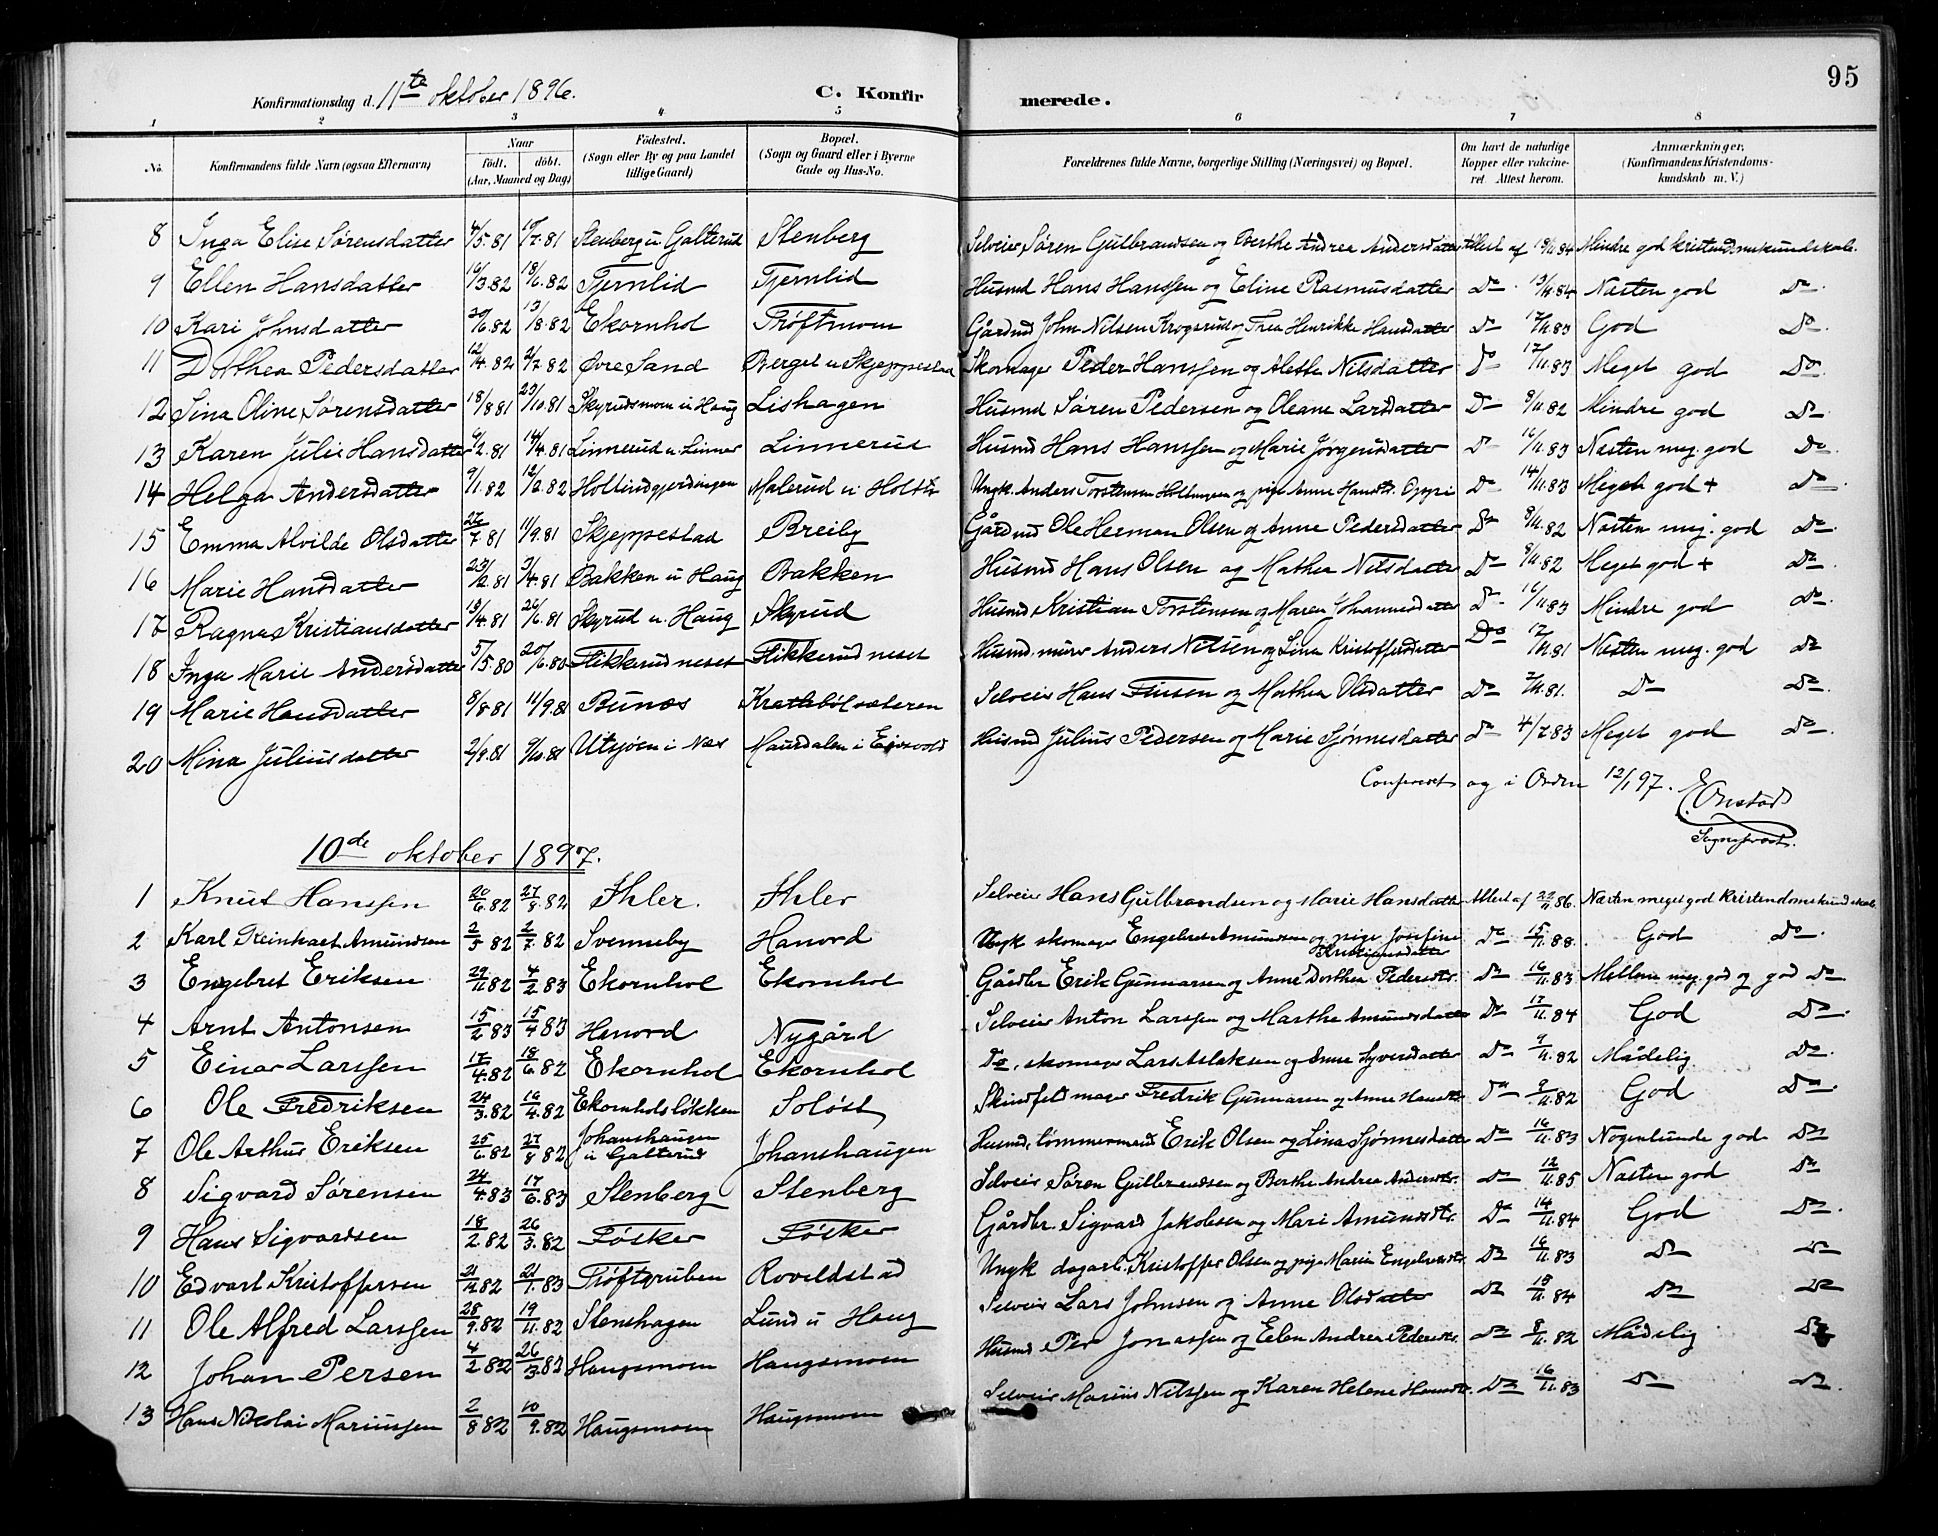 95
Konfirmationsdag d. 11te oktober 1896. C. Konfirmerede.
1 2 3 4 5 6 7 8
No. Konfirmandens fulde Navn (ogsaa Efternavn) Naar født. døbt. (Aar, Maaned og Dag) Fødested. (Sogn eller By og paa Landet tillige Gaard) Bopæl. (Sogn og Gaard eller i Byerne Gade og Hus-No. Forældrenes fulde Navne, borgerlige Stilling (Næringsvei) og Bopæl. Om havt de naturlige Kopper eller vaccineret. Attest herom. Anmærkninger. (Konfirmandens Kristendomskundskab m. V.)
8 Inga Elise Sørensdatter 4/5.81 17/7.81 Stenberg u. Galterud Stenberg Selveier Søren Gulbrandsen og Berthe Andrea Andersdatter Attest af 13/11.84 Mindre god kristendomskundskab.
9 Ellen Hansdatter 16/3.82 18/6.82 Tjernlid Tjernlid Husmd Hans Hanssen og Eline Rasmusdatter Do 13/11.84 Næsten god Do.
10 Kari Johnsdatter 20/6.82 13/8.82 Ekornhol Trøftmoen Gårdmd John Nilsen Krogerud og Thea Henrikke Hansdatter Do 17/11.83 God Do.
11 Dorthea Pedersdatter 12/4.82 2/7.82 Øvre Sand Berget u Skjeppestad Skomager Peder Hanssen og Alette Nilsdatter Do 17/11.83 Meget god Do.
12 Sina Oline Sørensdatter 18/8.81 23/10.81 Skyrudsmoen u Haug Lishagen Husmd Søren Pedersen og Oleane Larsdatter Do 8/11.82 Mindre god Do.
13 Karen Julie Hansdatter 6/2.81 14/4.81 Linnerud u. Linner Linnerud Husmd Hans Hanssen og Marie Jørgensdatter Do 16/11.83 Næsten meg. god Do.
14 Helga Andersdatter 9/1.82 12/2.82 Hollindgjerdingen Malerud u Holst Ungk. Anders Torstensen og pige Anne Hansdtr. Do 14/11.83 Meget god + Do.
15 Emma Alvilde Olsdatter 27/7.81 11/9.81 Skjeppestad Breiby Gårdmd Ole Herman Olsen og Anne Pedersdatter Do 8/11.82 Næsten meg. god Do.
16 Marie Hansdatter 23/2.81 3/4.81 Bakken u Haug Bakken Husmd Hans Olsen og Mathea Nilsdatter Do 8/11.82 Meget god + Do.
17 Ragna Kristiansdatter 13/4.81 26/6.81 Skyrud u. Haug Skyrud Husmd Kristian Torstensen og Maren Johannesdatter Do 16/11.83 Mindre god Do.
18 Inga Marie Andersdatter 5/5.80 20/6.80 Flikkerudneset Flikkerudneset Husmd. murer Anders Nilsen og Lina Kristoffersdatter Do 17/11.81 Næsten meg. god Do
19 Marie Hansdatter 8/8.81 11/9.81 Bunæs Krattebølsæteren Selveier Hans Finsen og Mathea Olsdatter Do 2/11.81. Do Do.
20 Mina Juliusdatter 2/8.81 9/10.81 Utsjøen i Næs Maurdalen i Eidsvold Husmd Julius Pedersen og Marie Sjønnesdatter Do 4/7.83 Meget god Do.
Confereret og i Orden 12/1 97. E. Onstad
Sogneprest.
10de oktober 1897.
1 Knut Hanssen 20/6.82 27/8.82 Ihler. Ihler Selveier Hans Gulbrandsen og Marie Hansdatter Attest af 22/11.86. Næsten meget god Kristendomskundskab.
2 Karl Reinhart Amundsen 2/5.82 2/7.82 Svenneby Hanord Ungk skomager Engebret Amundsen og pige Josefine Kristiansdatter Do 15/11.88. God Do.
3 Engebret Eriksen 29/11.82 4/2.83 Ekornhol Ekornhol Gårdbr Erik Gunnarsen og Anne Dorthea Pedersdtr. Do 16/11.83 Mellem meg. god og god Do
4 Arnt Antonsen 15/2.83 15/4.83 Henord Nygård Selveier Anton Larssen og Marthe Amundsdatter Do 17/11.84 God Do.
5 Einar Larssen 17/4.82 18/6.82 Ekornhol Ekornhol Do. skomager Lars Aslaksen og Anne Syversdatter Do 9/11.82 Mådelig Do.
6 Ole Fredriksen 24/3.82 16/4.82 Ekornholsløkken Soløst Skindfeldmager Fredrik Gunnarsen og Anne Hansdtr. Do 9/11.82 God Do.
7 Ole Arthur Eriksen 25/6.82 27/8.82 Johanshaugen u Galterud Johanshaugen Husmd. tømmermand Erik Olsen og Lina Sjønnesdatter Do 16/11.83 Nogenlunde god Do
8 Sigvard Sørensen 24/4.83 17/6.83 Stenberg Stenberg Selveier Søren Gulbrandsen og Berthe Andrea Andersdtr. Do 12/11.85 Næsten god Do
9 Hans Sigvardsen 18/2.82 26/3.82 Føsker Føsker Gårdbr. Sigvard Jakobsen og Mari Amundsdtr. Do 14/11.84 God Do.
10 Edvart Kristoffersen 21/11.82 21/1.83 Trøftgruben Roveldstad Ungk dagarb. Kristoffer Olsen og pige Maria Engebretsdtr. Do 16/11.83 Do Do
11 Ole Alfred Larssen 28/9.82 19/11.82 Stenshagen Lund u Haug Selveier Lars Johnsen og Anne Olsdatter Do 18/11.84 Do Do
12 Johan Persen 4/2.82 26/3.82 Haugsmoen Haugsmoen Husmd Per Jonassen og Ellen Andrea Pedersdtr. Do 8/11.82 Mådelig Do
13 Hans Nikolai Mariussen 2/8.82 10/9.82 Haugsmoen Haugsmoen Selveier Marius Nilssen og Karen Helene Hansdtr. Do 16/11.83 Do Do.